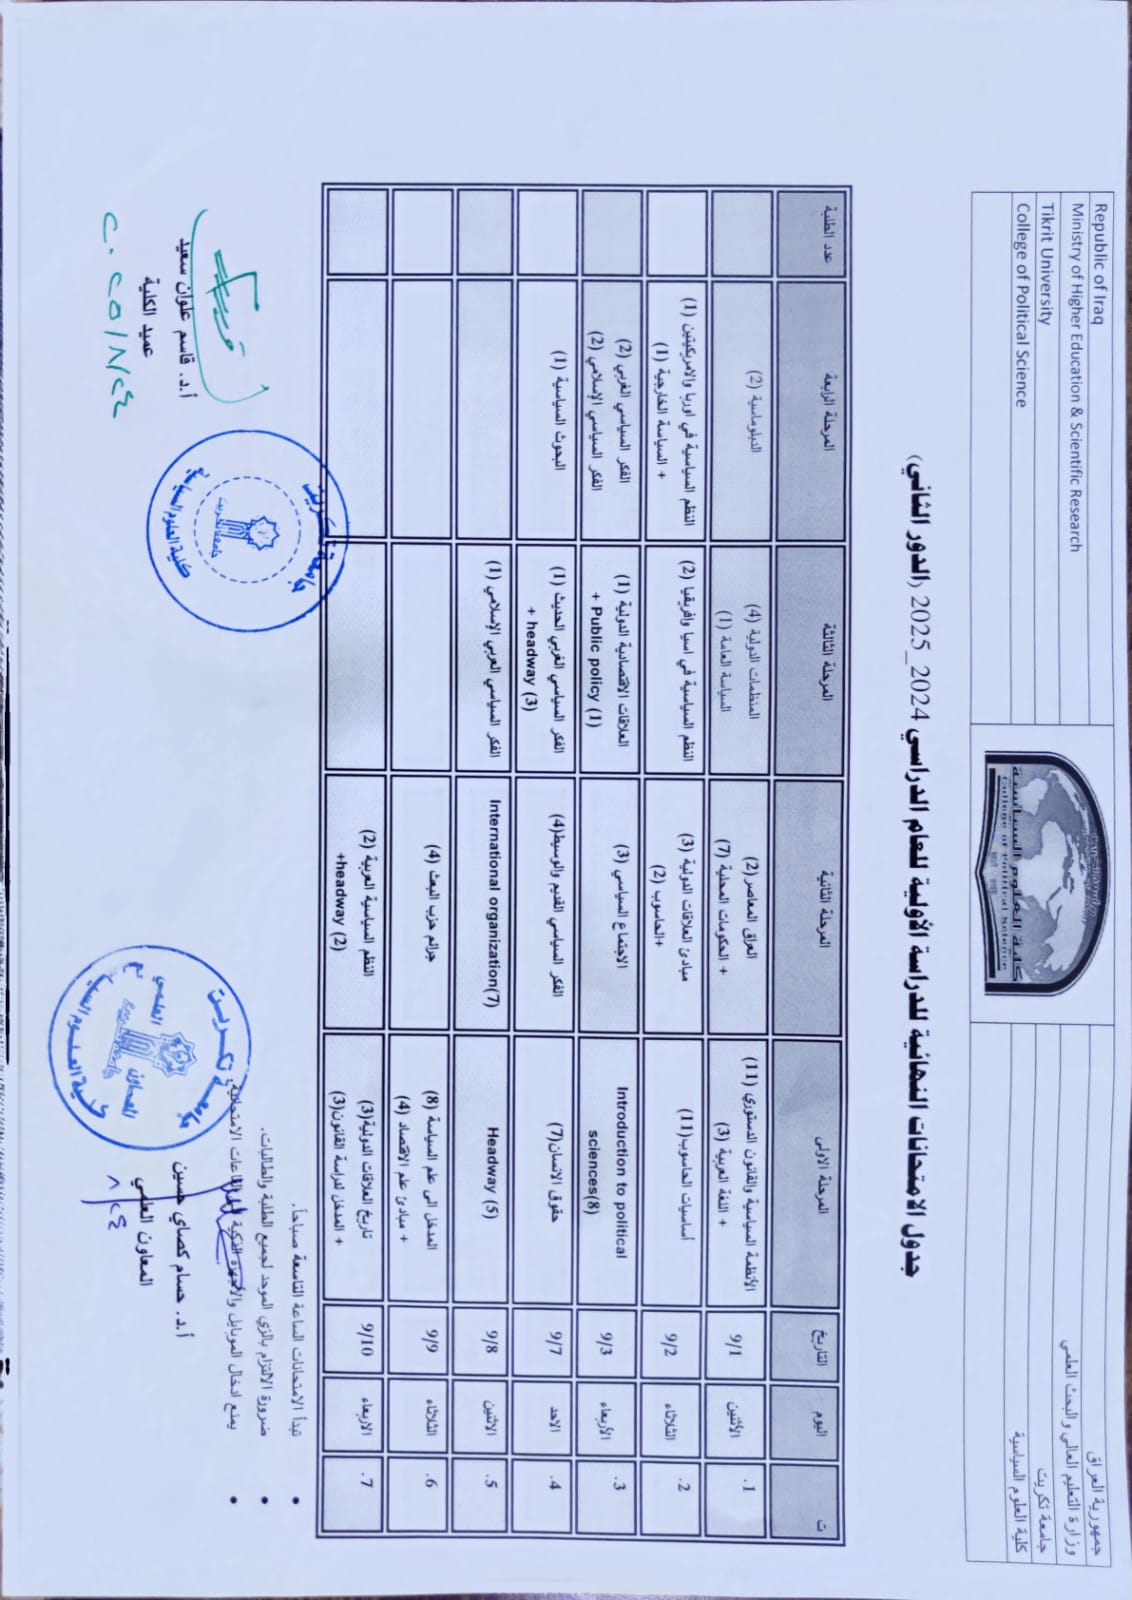 Republic of Iraq
Ministry of Higher Education & Scientific Research
Tikrit University
College of Political Science
جمهورية العراق
وزارة التعليم العالي والبحث العلمي
جامعة تكريت
كلية العلوم السياسية
كلية العلوم السياسية
College of Political Science
جدول الامتحانات النهائية للدراسة الأولية للعام الدراسي 2024_2025 (الدور الثاني)
ت اليوم التاريخ المرحلة الاولى المرحلة الثانية المرحلة الثالثة المرحلة الرابعة عدد الطلبة
1. الأثنين 9/1
الأنظمة السياسية والقانون الدستوري (11)
+ اللغة العربية (3)
العراق المعاصر(2)
+ الحكومات المحلية (7)
المنظمات الدولية (4)
السياسة العامة (1)
الدبلوماسية (2)
2. الثلاثاء 9/2
أساسيات الحاسوب(11)
مبادئ العلاقات الدولية (3)
+الحاسوب (2)
النظم السياسية في اسيا وافريقيا (2)
النظم السياسية في اوربا والامريكيتين (1)
+ السياسة الخارجية (1)
3. الأربعاء 9/3
Introduction to political
sciences(8)
الاجتماع السياسي (3)
العلاقات الاقتصادية الدولية (1)
+ Public policy (1)
الفكر السياسي الغربي (2)
الفكر السياسي الإسلامي (2)
4. الاحد 9/7
حقوق الانسان(7)
الفكر السياسي القديم والوسيط(4)
الفكر السياسي الغربي الحديث (1)
+ headway (3)
البحوث السياسية (1)
5. الاثنين 9/8
Headway (5)
International organization(7)
الفكر السياسي العربي الإسلامي (1)
6. الثلاثاء 9/9
المدخل الى علم السياسة (8)
+ مبادئ علم الاقتصاد (4)
جرائم حزب البعث (4)
7. الاربعاء 9/10
تاريخ العلاقات الدولية(3)
+ المدخل لدراسة القانون(3)
النظم السياسية العربية (2)
+headway (2)
• تبدأ الامتحانات الساعة التاسعة صباحاً.
• ضرورة الالتزام بالزي الموحد لجميع الطلبة والطالبات.
• يمنع ادخال الموبايل والأجهزة الذكية القاعات الامتحانية.
أ.د. حسام كصاي حسين
المعاون العلمي
٨/٢٤
أ.د. قاسم علوان سعيد
عميد الكلية
٢٠٢٥/٨/٢٤
جامعة تكريت
كلية العلوم السياسية
جامعة تكريت
كلية العلوم السياسية
المعاون العلمي